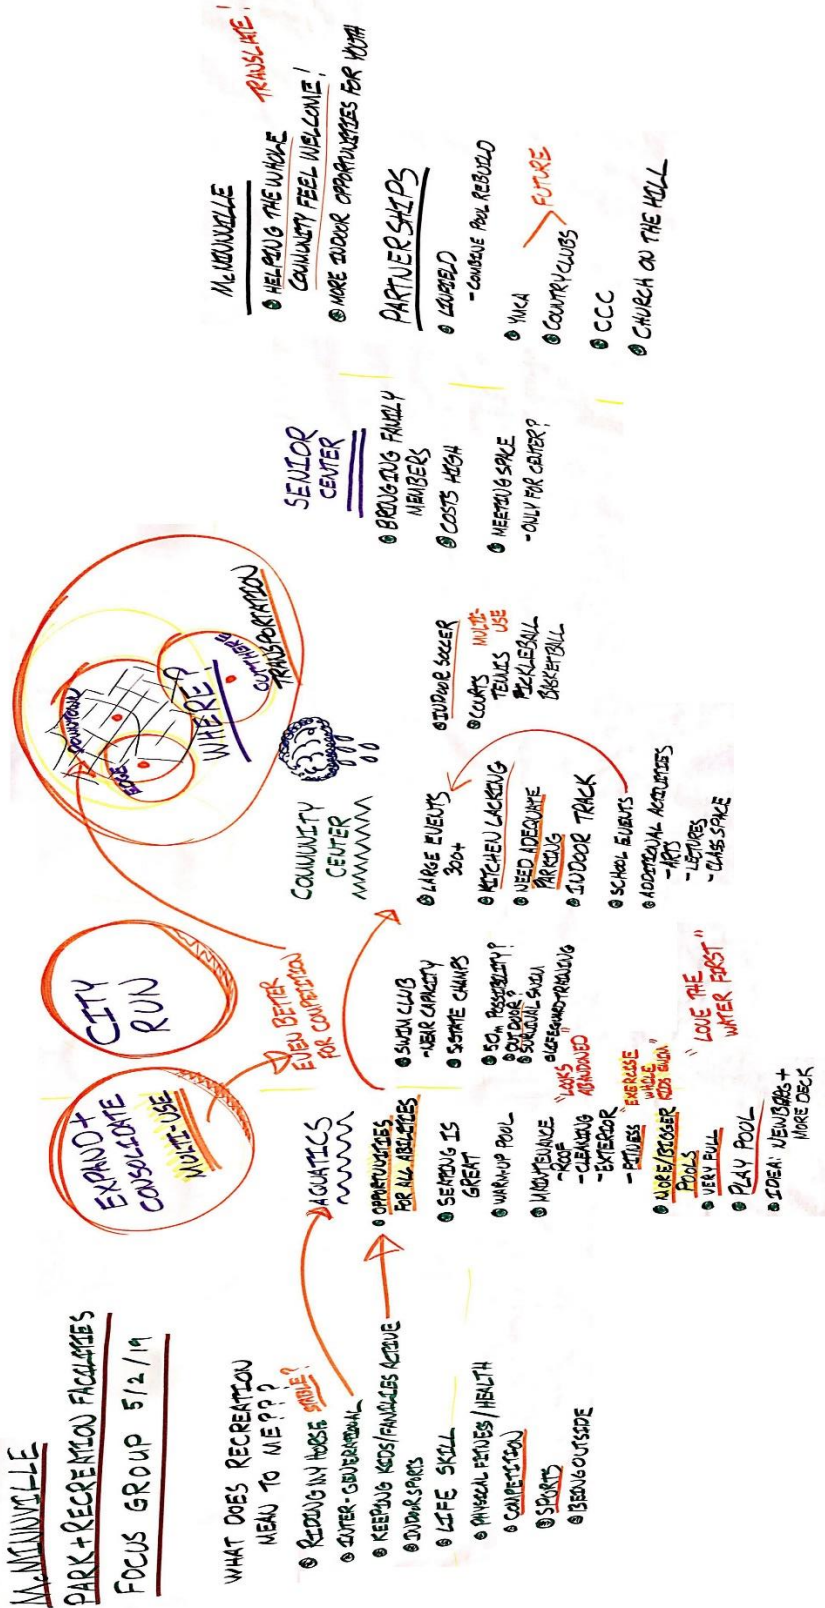 McMINNVILLE
PARK + RECREATION FACILITIES
FOCUS GROUP 5/2/19
WHAT DOES RECREATION
MEAN TO ME???
RIDING MY HORSE STABLE?
INTER-GENERATIONAL
KEEPING KIDS/FAMILIES ACTIVE
INDOOR SPORTS
LIFE SKILL
PHYSICAL FITNESS/HEALTH
COMPETITION
SPORTS
BEING OUTSIDE
EXPAND +
CONSOLIDATE
MULTI-USE
CITY
RUN
EVEN BETTER
FOR COMPETITION
AQUATICS
OPPORTUNITIES
FOR ALL ABILITIES
SEATING IS
GREAT
WARMUP POOL
MAINTENANCE
-ROOF
-CLEANING
-EXTERIOR
"LOOKS
ABANDONED"
-FITNESS
"EXERCISE
WHILE
KIDS SWIM"
MORE/BIGGER
POOLS
VERY FULL
PLAY POOL
IDEA: NEWBERG +
MORE DECK
"LOVE THE
WATER FIRST"
SWIM CLUB
-NEAR CAPACITY
5 STATE CHAMPS
50m POSSIBILITY?
OUTDOOR?
SURVIVAL SWIM
LIFEGUARD TRAINING
DOWNTOWN
EDGE
WHERE?
OUT HERE
TRANSPORTATION
COMMUNITY
CENTER
LARGE EVENTS
300+
KITCHEN LACKING
NEED ADEQUATE
PARKING
INDOOR TRACK
SCHOOL EVENTS
ADDITIONAL ACTIVITIES
-ARTS
-LECTURES
-CLASS SPACE
INDOOR SOCCER
COURTS MULTI-
USE
TENNIS
PICKLEBALL
BASKETBALL
SENIOR
CENTER
BRINGING FAMILY
MEMBERS
COSTS HIGH
MEETING SPACE
-ONLY FOR CENTER?
McMINNVILLE
HELPING THE WHOLE
COMMUNITY FEEL WELCOME!
TRANSLATE!
MORE INDOOR OPPORTUNITIES FOR YOUTH
PARTNERSHIPS
LINFIELD
-COMBINE POOL REBUILD
YMCA
COUNTRY CLUBS
FUTURE
CCC
CHURCH ON THE HILL